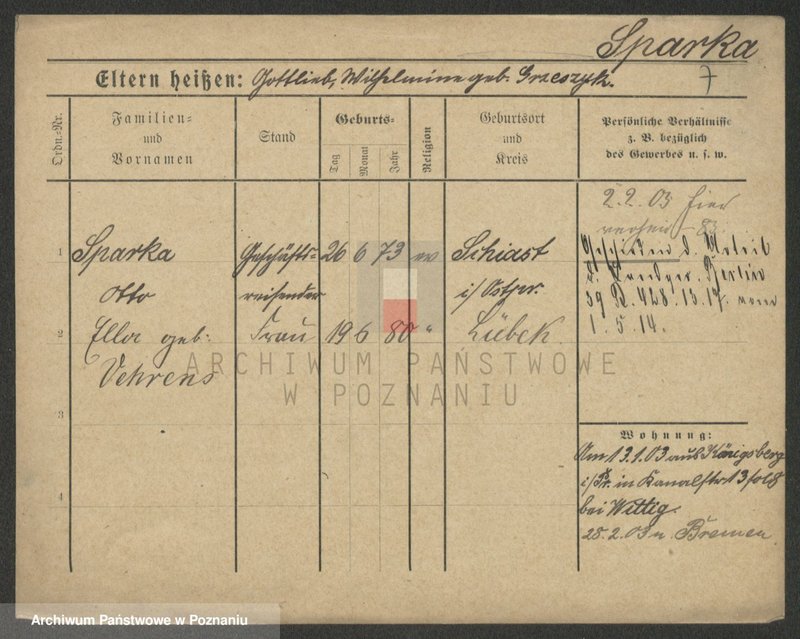 Sparka
Eltern heißen: Gottlieb, Wilhelmine geb. Grzeszyk.
7
Ordn.-Nr.
Familien-
und
Vornamen
Stand
Geburts-
Tag
Monat
Jahr
Religion
Geburtsort
und
Kreis
Persönliche Verhältnisse
z. B. bezüglich
des Gewerbes u. s. w.
2. 2. 03 hier
83.
1 Sparka Geschäfts- 26 6 73 ev Schiast
Otto reisender i/Ostpr.
2 Ella geb: Frau 19 6 80 " Lübek.
Vehrens
Geschieden d. Urteil
d. Landger. Berlin
59 R. 428. 13. 17. vom
1. 5. 14.
3
4
Wohnung:
Am 13.1.03 aus Königsberg
i/Pr. in Kanalstr 13
bei Wittig.
28. 2. 03 n. Bremen
ARCHIWUM PAŃSTWOWE
W POZNANIU
Archiwum Państwowe w Poznaniu